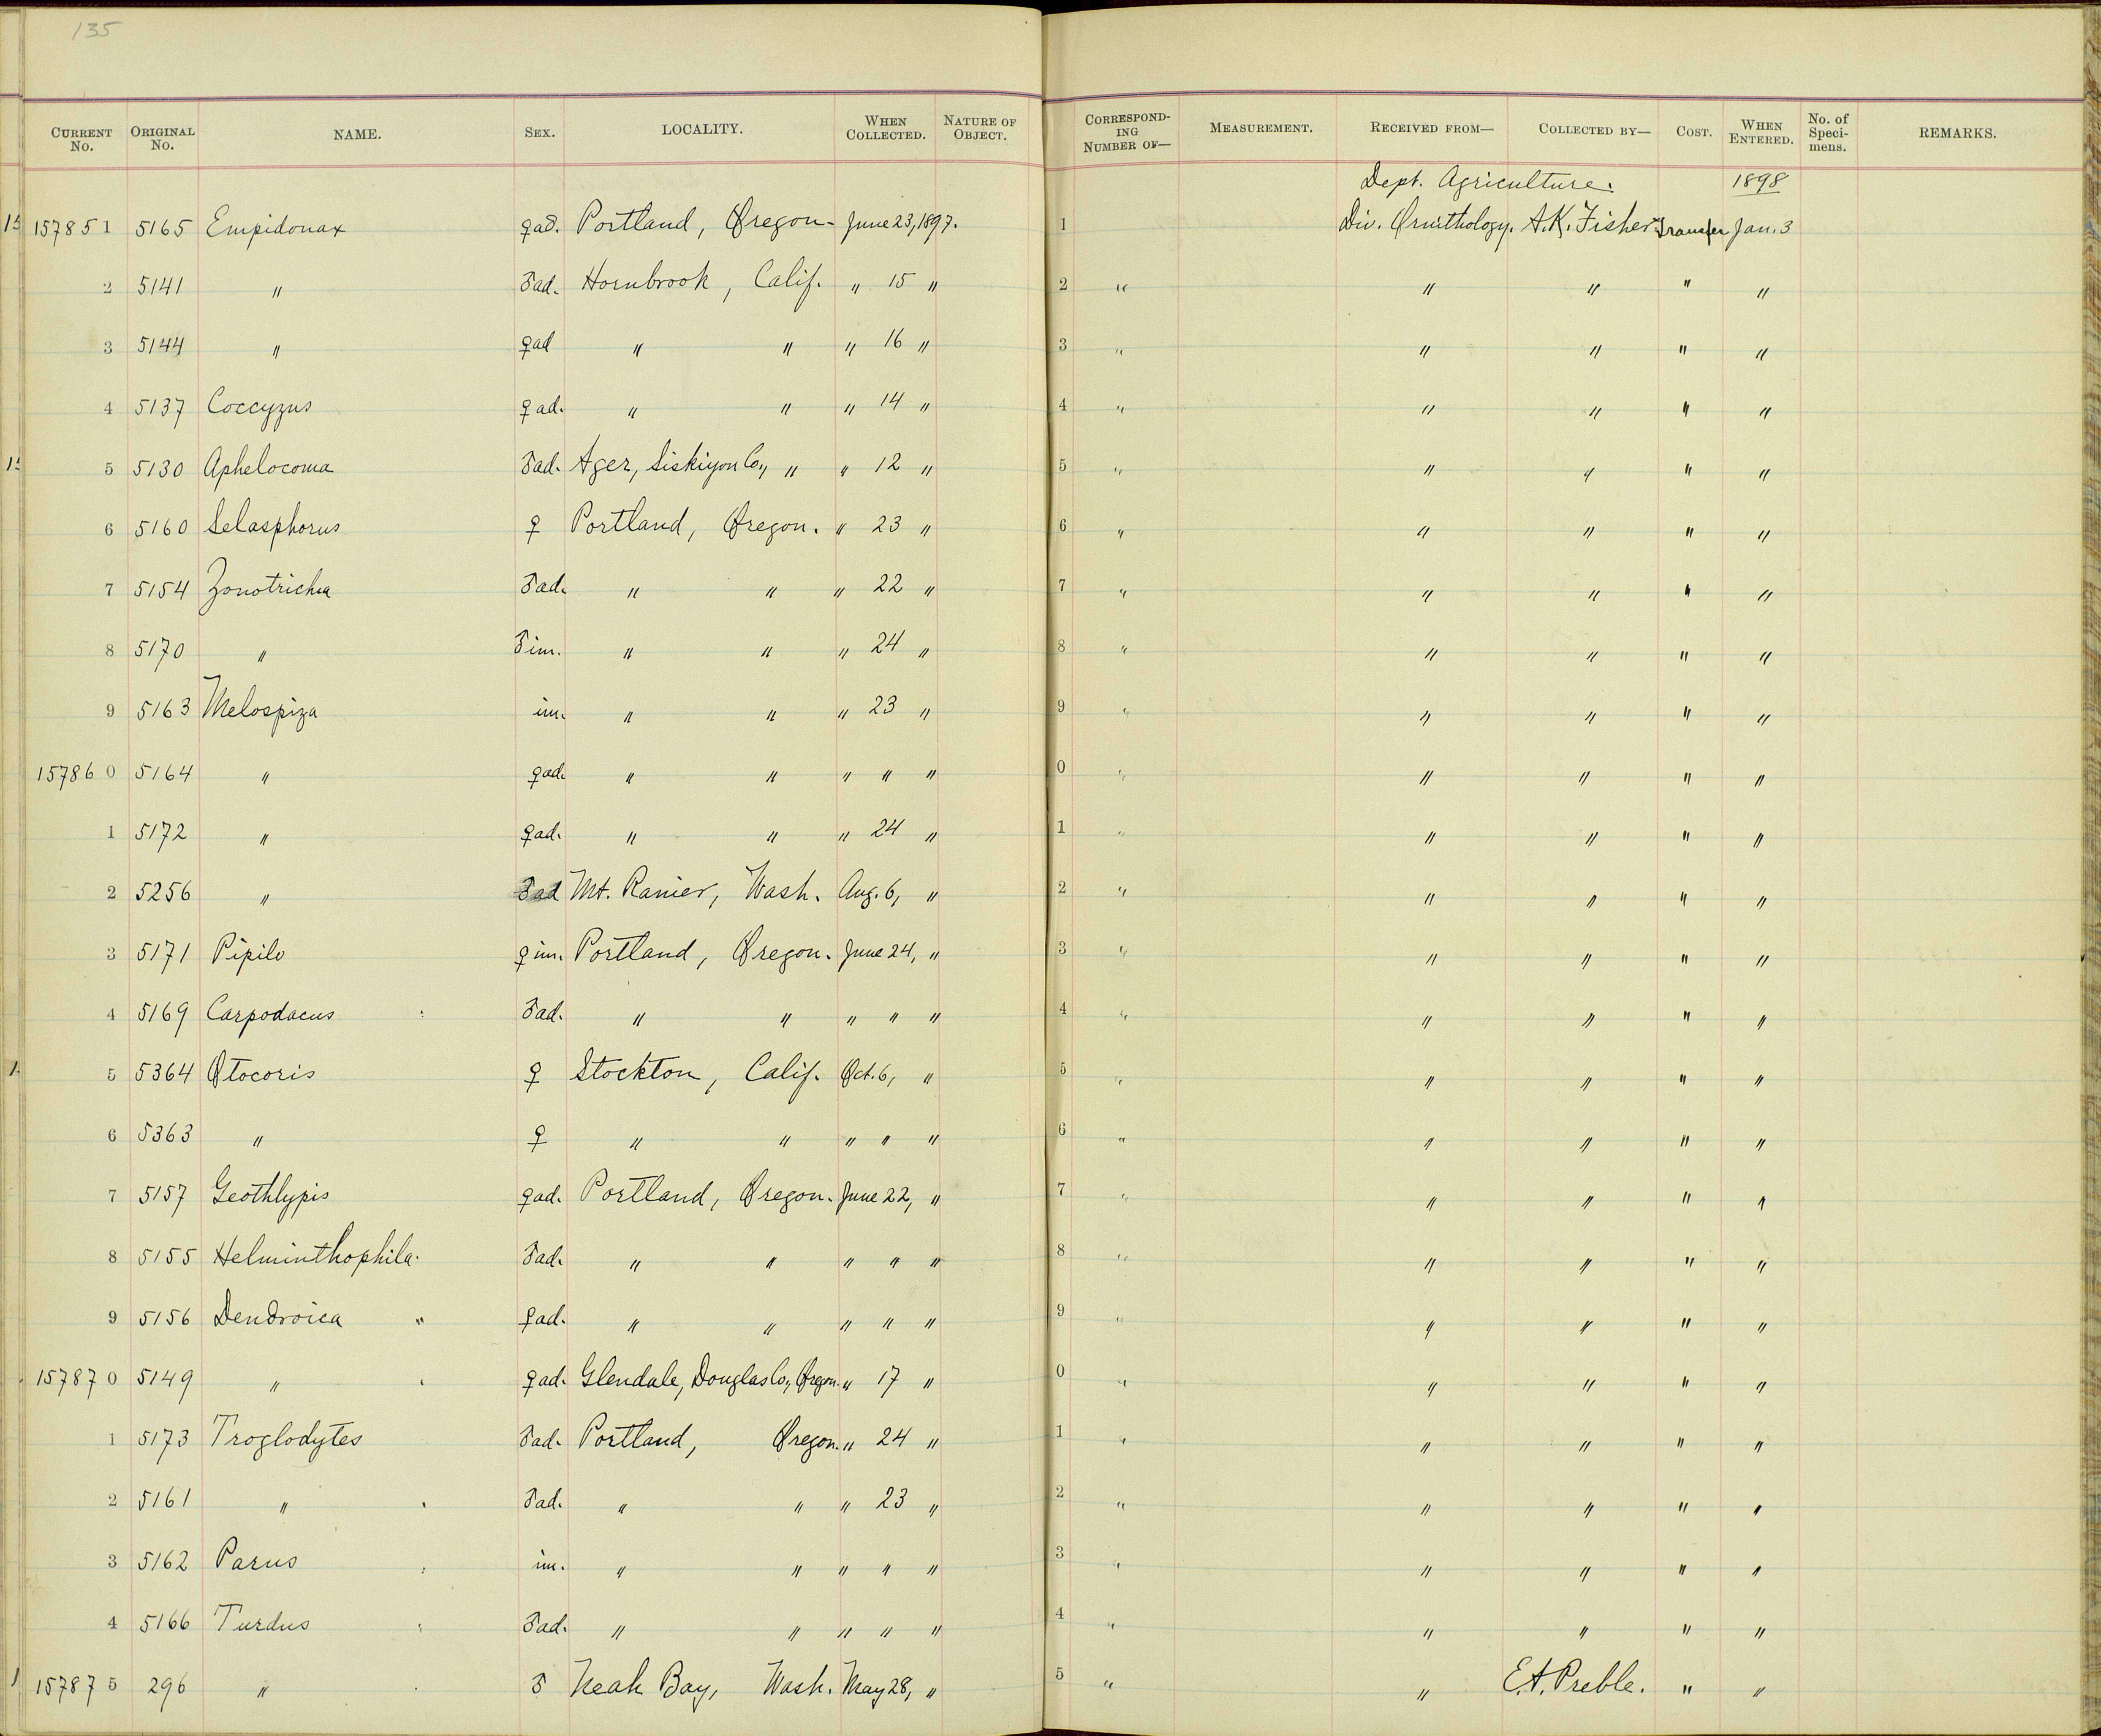 135
CURRENT No. ORIGINAL No. NAME. SEX. LOCALITY. WHEN COLLECTED. NATURE OF OBJECT. CORRESPONDING NUMBER OF— MEASUREMENT. RECEIVED FROM— COLLECTED BY— COST. WHEN ENTERED. No. of Specimens. REMARKS.
Dept. Agriculture. 1898
157851 5165 Empidonax ♀ad. Portland, Oregon - June 23, 1897. 1 Div. Ornithology. A.K. Fisher Transfer Jan. 3
2 5141 " ♂ad. Hornbrook, Calif. " 15 " 2 " " " " "
3 5144 " ♀ad " " " 16 " 3 " " " " "
4 5137 Coccyzus ♀ad. " " " 14 " 4 " " " " "
5 5130 Aphelocoma ♂ad. Ager, Siskiyou Co., " " 12 " 5 " " " " "
6 5160 Selasphorus ♀ Portland, Oregon. " 23 " 6 " " " " "
7 5154 Zonotrichia ♂ad. " " " 22 " 7 " " " " "
8 5170 " ♂im. " " " 24 " 8 " " " " "
9 5163 Melospiza im. " " " 23 " 9 " " " " "
157860 5164 " ♀ad. " " " " " 0 " " " " "
1 5172 " ♀ad. " " " 24 " 1 " " " " "
2 5256 " ♂ad Mt. Ranier, Wash. Aug. 6, " 2 " " " " "
3 5171 Pipilo ♀im. Portland, Oregon. June 24, " 3 " " " " "
4 5169 Carpodacus ♂ad. " " " " " 4 " " " " "
5 5364 Otocoris ♀ Stockton, Calif. Oct. 6, " 5 " " " " "
6 5363 " ♀ " " " " " 6 " " " " "
7 5157 Geothlypis ♀ad. Portland, Oregon. June 22, " 7 " " " " "
8 5155 Helminthophila. ♂ad. " " " " " 8 " " " " "
9 5156 Dendroica " ♀ad. " " " " " 9 " " " " "
157870 5149 " ♀ad. Glendale, Douglas Co., Oregon. " 17 " 0 " " " " "
1 5173 Troglodytes ♂ad. Portland, Oregon. " 24 " 1 " " " " "
2 5161 " ♂ad. " " " 23 " 2 " " " " "
3 5162 Parus im. " " " " " 3 " " " " "
4 5166 Turdus ♂ad. " " " " " 4 " " " " "
157875 296 " ♂ Neah Bay, Wash. May 28, " 5 " " E.A. Preble. " "